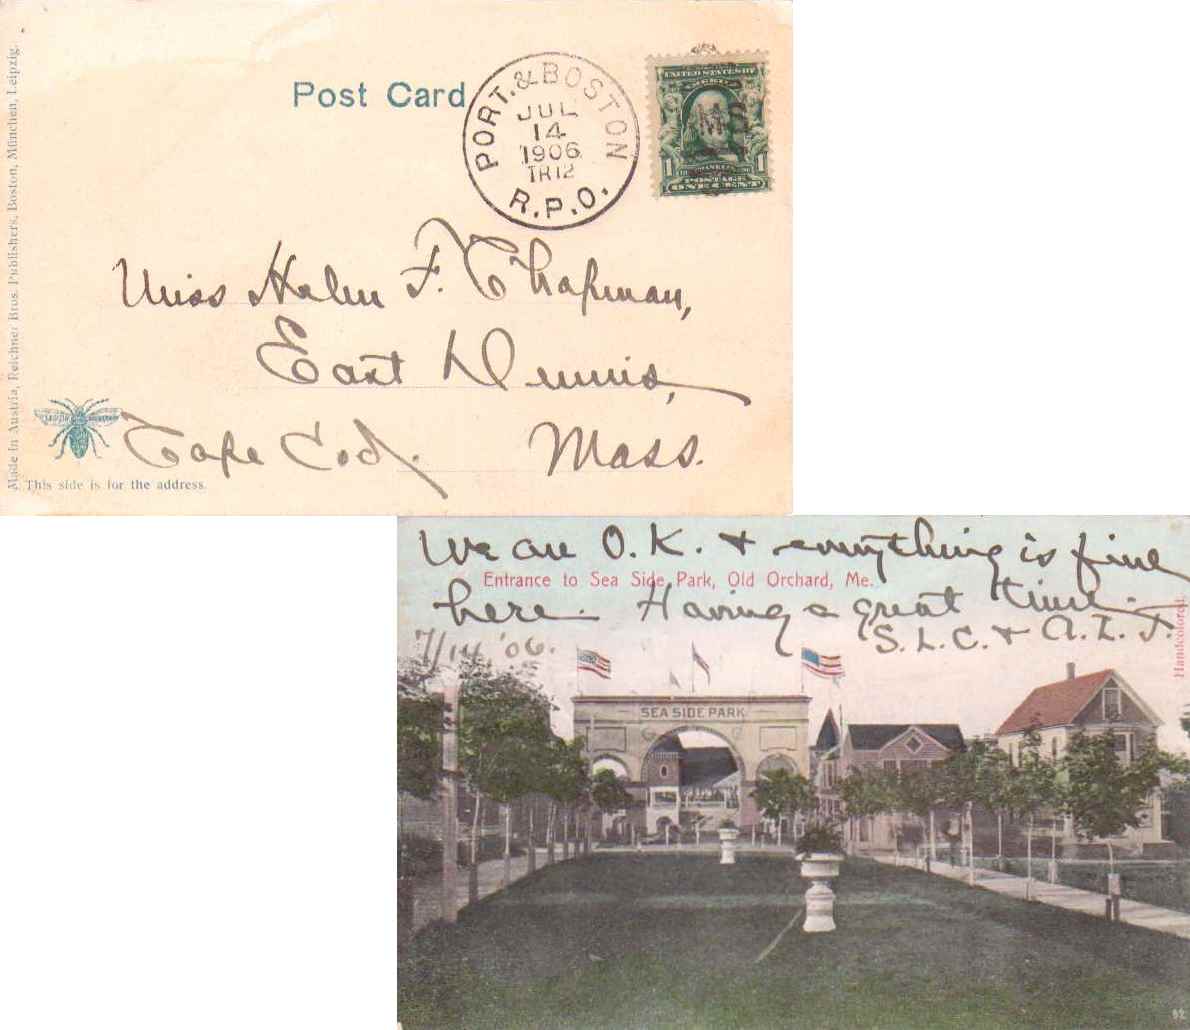 Post Card
PORT. & BOSTON
JUL
14
1906
TR12
R.P.O.
UNITED STATES OF
AMERICA
MS
1 1
POSTAGE
ONE CENT
Miss Helen F. Chapman,
East Dennis,
Cape Cod. Mass.
This side is for the address.
Made in Austria, Reichner Bros. Publishers, Boston, München, Leipzig.
We are O.K. & everything is fine
Entrance to Sea Side Park, Old Orchard, Me.
here. Having a great time.
S.L.C. & A.L.T.
7/14 '06.
Handcolored.
SEA SIDE PARK
92